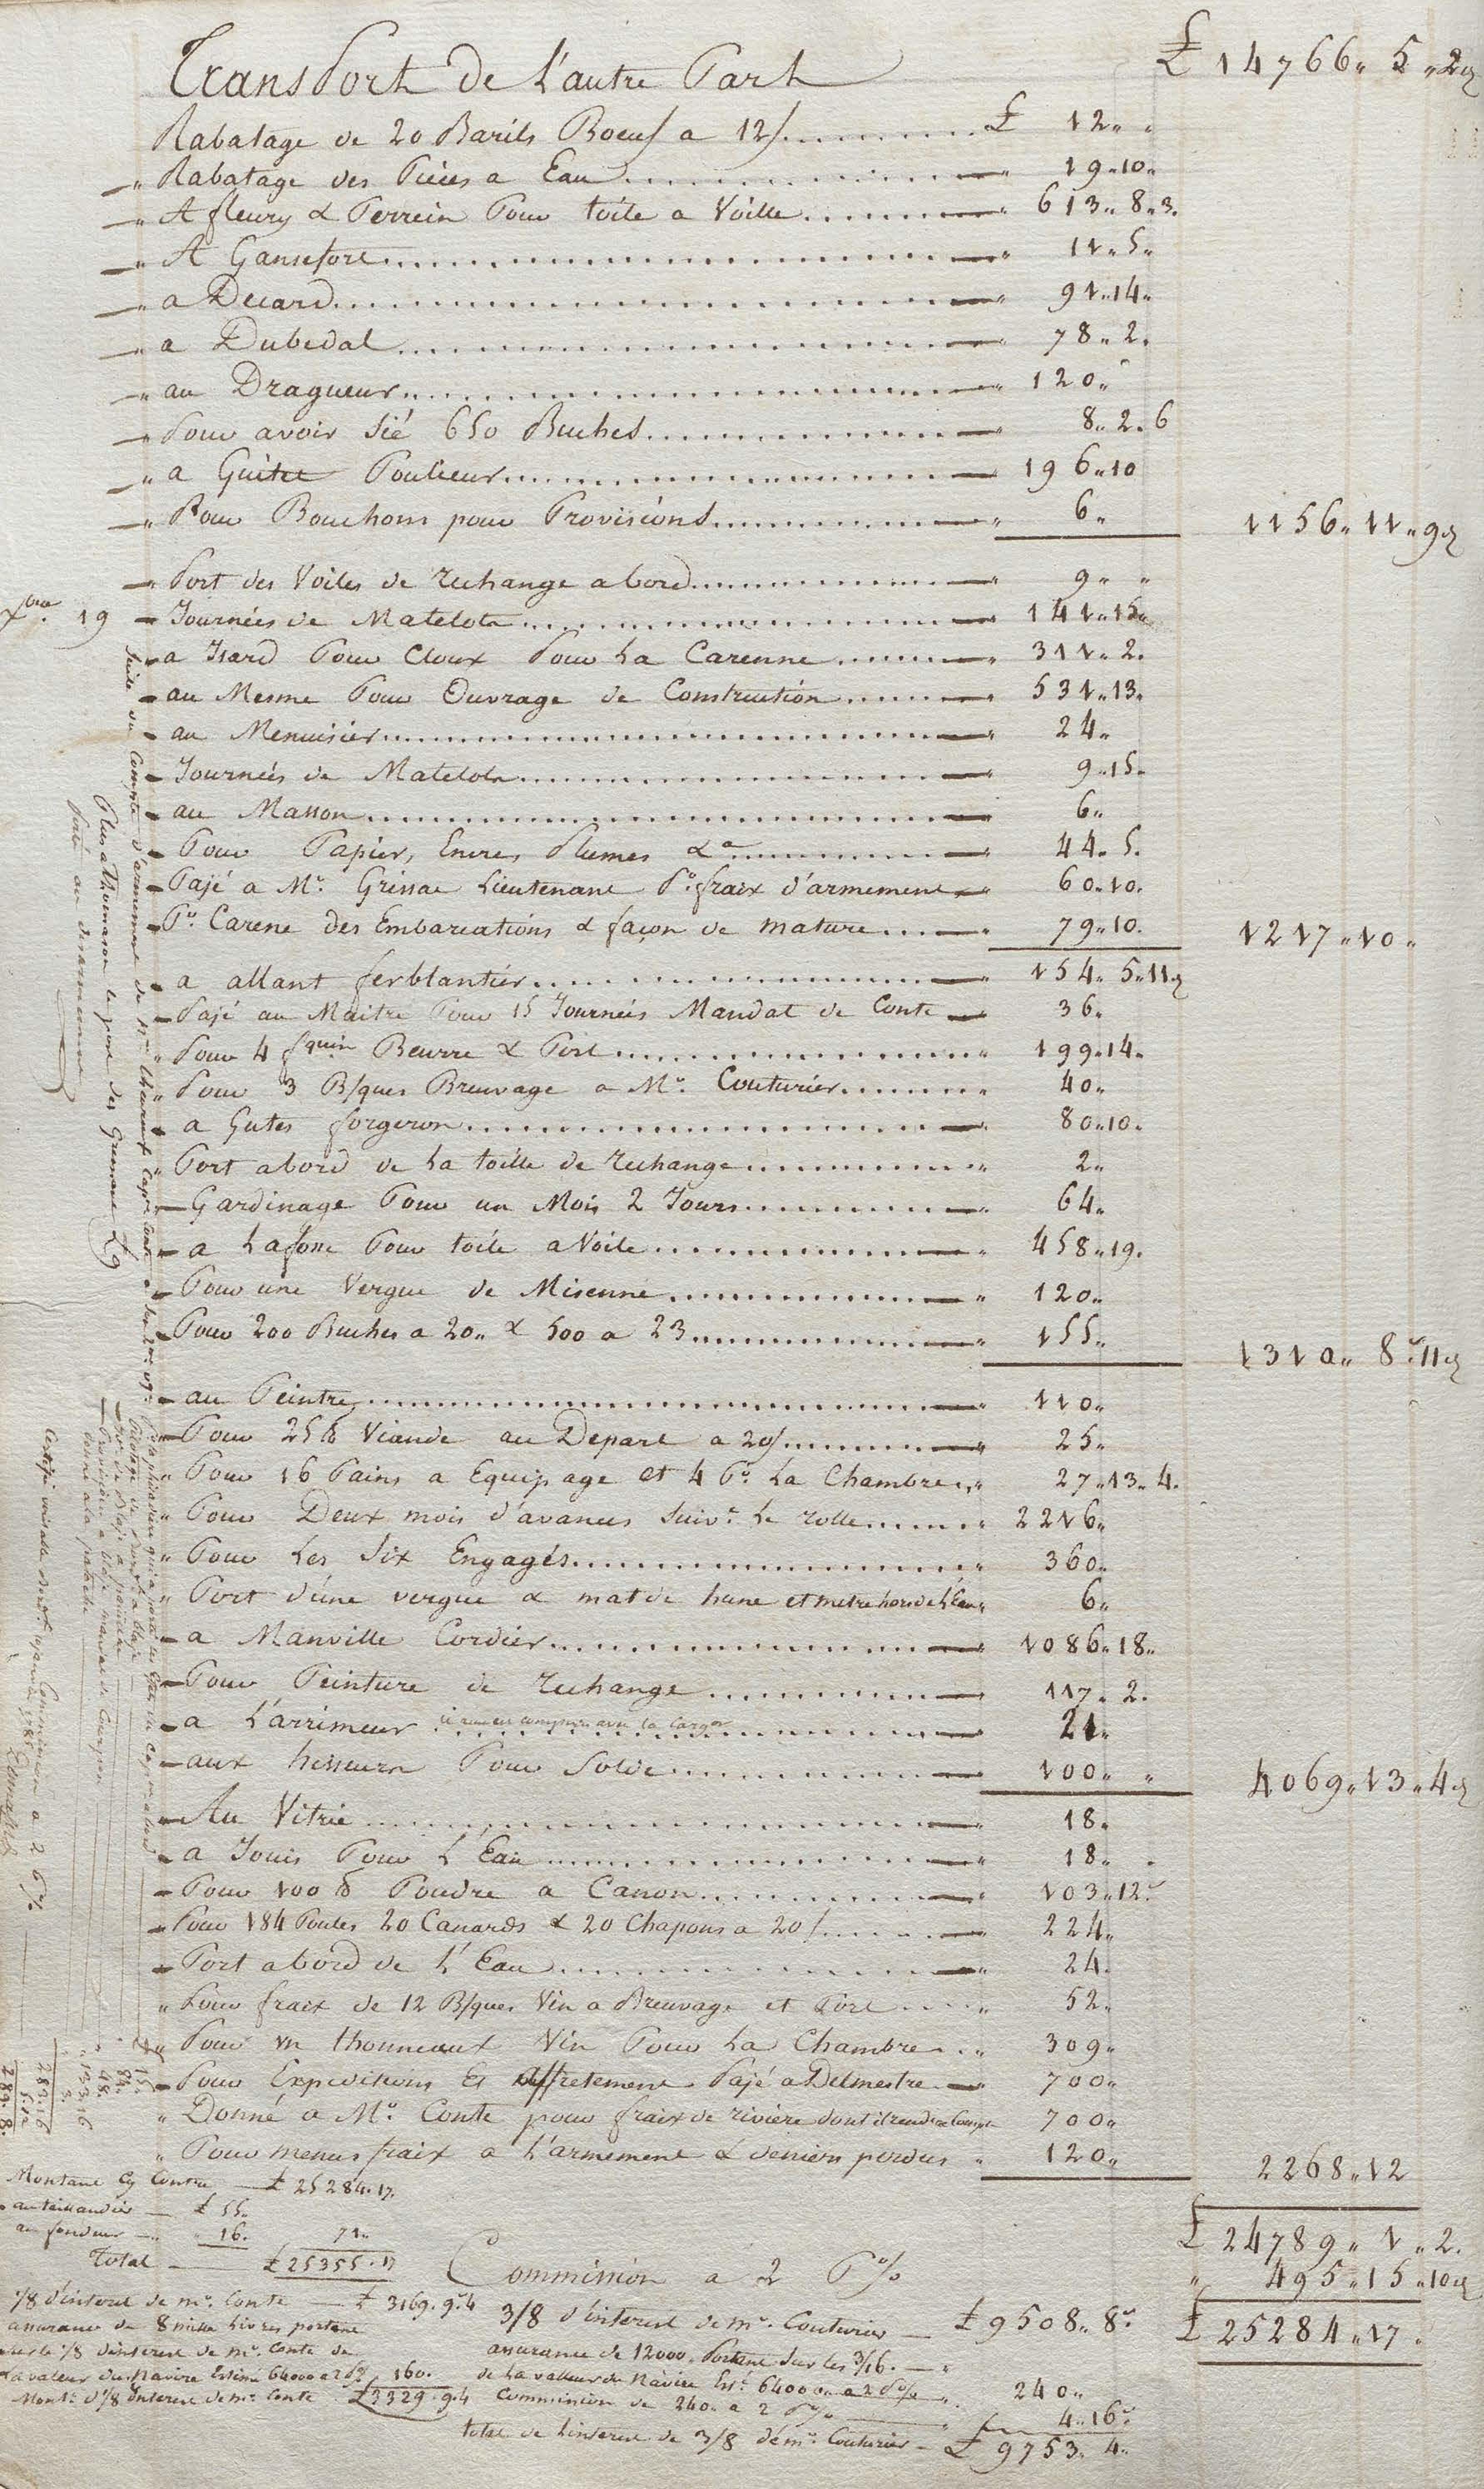 Transport de L'autre Part £ 14766" 5" 2d
Rabatage de 20 Barils Boeuf a 12/ £ 12" "
Rabatage des Piéces a Eau 19"10"
A fleury & Perrein Pour toile a Voille 613" 8"3.
A Gansefort 11"5"
a Decard 91"14"
a Dubedat 78"2.
au Dragueur 120"
Pour avoir sié 650 Buches 8"2"6
a Guitet Poulieur 196"10
Pour Bouchons pour Provisions 6" 1156"11"9d
Port des Voiles de rechange abord 9" "
Xbre. 19 Journées de Matelots 141"15"
a Isard Pour Cloux Pour La Carenne 311"2.
au Mesme Pour Ouvrage de Construction 531"13.
au Menuisier 24"
Journées de Matelots 9"15"
au Masson 6"
Pour Papier, Encres, Plumes &a 44"5.
Pajé a Mr. Grissac Lieutenant Pr. fraix d'armement 60"10.
Pr. Carene des Embarcations & façon de mature 79"10. 1217"10"
a allant ferblantier 154"5"11d
Pajé au Maitre Pour 15 Journées Mandat de Conte 36"
Pour 4 fquin Beurre & Port 199"14"
Pour 3 B/ques Breuvage a Mr. Couturier 40"
a Gutes forgeron 80"10"
Port abord de La toille de rechange 2"
Gardinage Pour un Mois 2 Jours 64"
a Lafon Pour toile a Voile 458"19.
Pour une Vergue de Misenne 120"
Pour 200 Buches a 20" & 500 a 23 155" 1310" 8"11d
au Peintre 110"
Pour 25 lb Viande au Depart a 20/ 25"
Pour 16 Pains a Equipage et 4 Pr. La Chambre 27"13"4.
Pour Deux mois d'avances suivt. Le rolle 2216"
Pour Les Six Engagés 360"
Port d'une vergue & mat de hune et metre hors de L'Eau 6"
a Manville Cordier 1086"18"
Pour Peinture de rechange 117"2.
a L'arrimeur 21"
aux hisseurs Pour Solde 100" " 4069"13"4d
Au Vitrié 18"
a Jouis Pour L'Eau 18"
Pour 100 lb Poudre a Canon 103"12s
Pour 184 Poules 20 Canards & 20 Chapons a 20/ 224"
Port abord de L'Eau 24.
Pour fraix de 12 B/ques Vin a Breuvage et Port 52"
Pour un thonneaut Vin Pour La Chambre 309"
Pour Expeditions Et affretement Pajé a Delmestre 700"
Donné a Mr. Conte pour fraix de riviere dont il rendra Compte 700"
Pour menus fraix a L'armement & deniers perdus 120" 2268"12
£ 24789" 1"2.
Commission a 2 P% " 495"15"10d
£ 25284"17.
3/8 d'interest de mr. Couturier £ 9508" 8s
assurance de 12000" Portant sur les 3/16.
de La valleur du Navire Esté. 64000" a 2 P% 240"
Commission de 240" a 2 P% 4"16s
total de Linterest de 3/8 de mr. Couturier £ 9753" 4"
Montant Cy Contre £ 25284"17.
au taillandier £ 55"
au fondeur 16. 71"
Total £ 25355"17
1/8 d'interest de mr. Conte £ 3169"9s4
assurance de 8 mille Livres portant
sur le 1/8 d'interest de mr. Conte de
La valeur du Navire Estimé 64000 a 2 P% 160.
Montt. d'1/8 d'interest de mr. Conte £ 3329"9"4
Suite du Compte d'armement
Plus a Thomason le port des
Porté au desarmement
Commission a 2 P%
15"
84"
48"
133"16
3.
283"16
5.12
289"8.